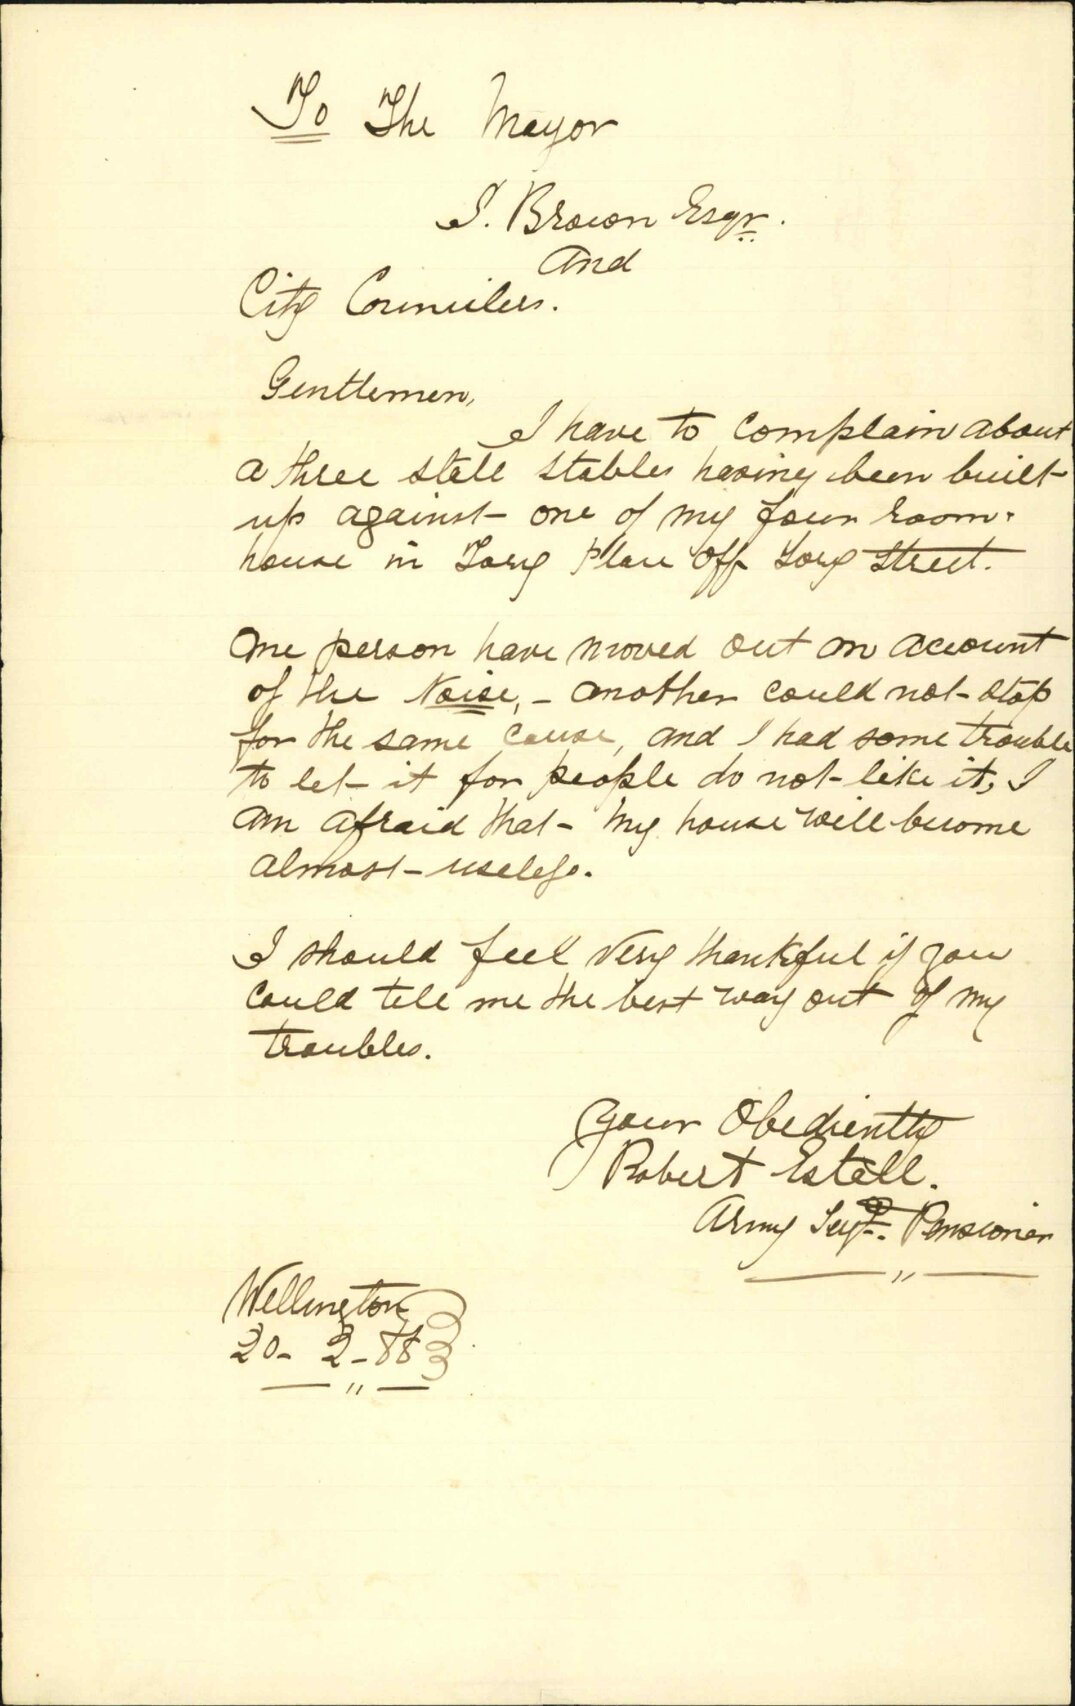 To The Mayor
S. Brown Esqr.
And
City Councilers.
Gentlemen,
I have to complain about
a three stall stables having been built
up against one of my four room
house in Tory Place Off Tory Street.
One person have moved out on account
of the Noise, - another could not stop
for the same cause, and I had some trouble
to let it for people do not like it, I
am afraid that my house will become
almost useless.
I should feel very thankful if you
could tell me the best way out of my
troubles.
Your Obediently
Robert Estall.
Army Sergt. Pensioner
Wellington
20 - 2 - 88